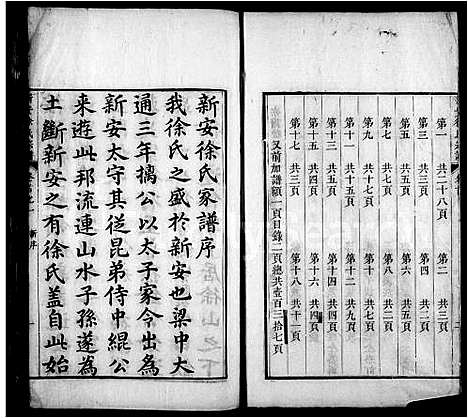 第一 共二十八頁
第三 共五頁
第五 共六頁
第七 共五頁
第九 共十七頁
第十一 共五頁
第十三 共六頁
第十五 共四頁
第十七 共四頁
第二 共三頁
第四 共二頁
第六 共五頁
第八 共二頁
第十 共十六頁
第十二 共九頁
第十四 共十頁
第十六 共四頁
第十八 共十一頁
又前加譜額一頁目錄二頁總共壹百三拾七頁
新安徐氏家譜序
我徐氏之盛於新安也梁中大
通三年摛公以太子家令出為
新安太守其從昆弟侍中緄公
来遊此邦流連山水子孫遂為
土斷新安之有徐氏蓋自此始